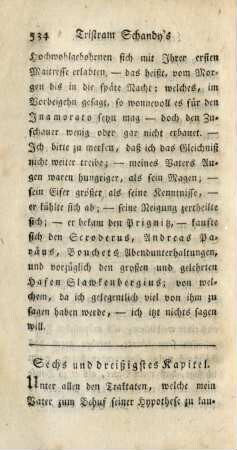 534 Tristram Schandy's
Hochwohlgebohrnen sich mit Ihrer ersten
Maitresse erlabten, — das heißt, vom Mor-
gen bis in die späte Nacht: welches, im
Vorbeigehn gesagt, so wonnevoll es für den
Inamorato seyn mag — doch den Zu-
schauer wenig oder gar nicht erbauet. —
Ich bitte zu merken, daß ich das Gleichniß
nicht weiter treibe; — meines Vaters Au-
gen waren hungriger, als sein Magen; —
sein Eifer größer als seine Kenntnisse, —
er kühlte sich ab; — seine Neigung zertheilte
sich; — er bekam den Prignitz, — kaufte
sich den Scroderus, Andreas Pa-
räus, Bouchets Abendunterhaltungen,
und vorzüglich den großen und gelehrten
Hafen Slawkenbergius; von wel-
chen, da ich gelegentlich viel von ihm zu
sagen haben werde, — ich itzt nichts sagen
will.
Sechs und dreißigstes Kapitel.
Unter allen den Traktaten, welche mein
Vater zum Behuf seiner Hypothese zu kau-